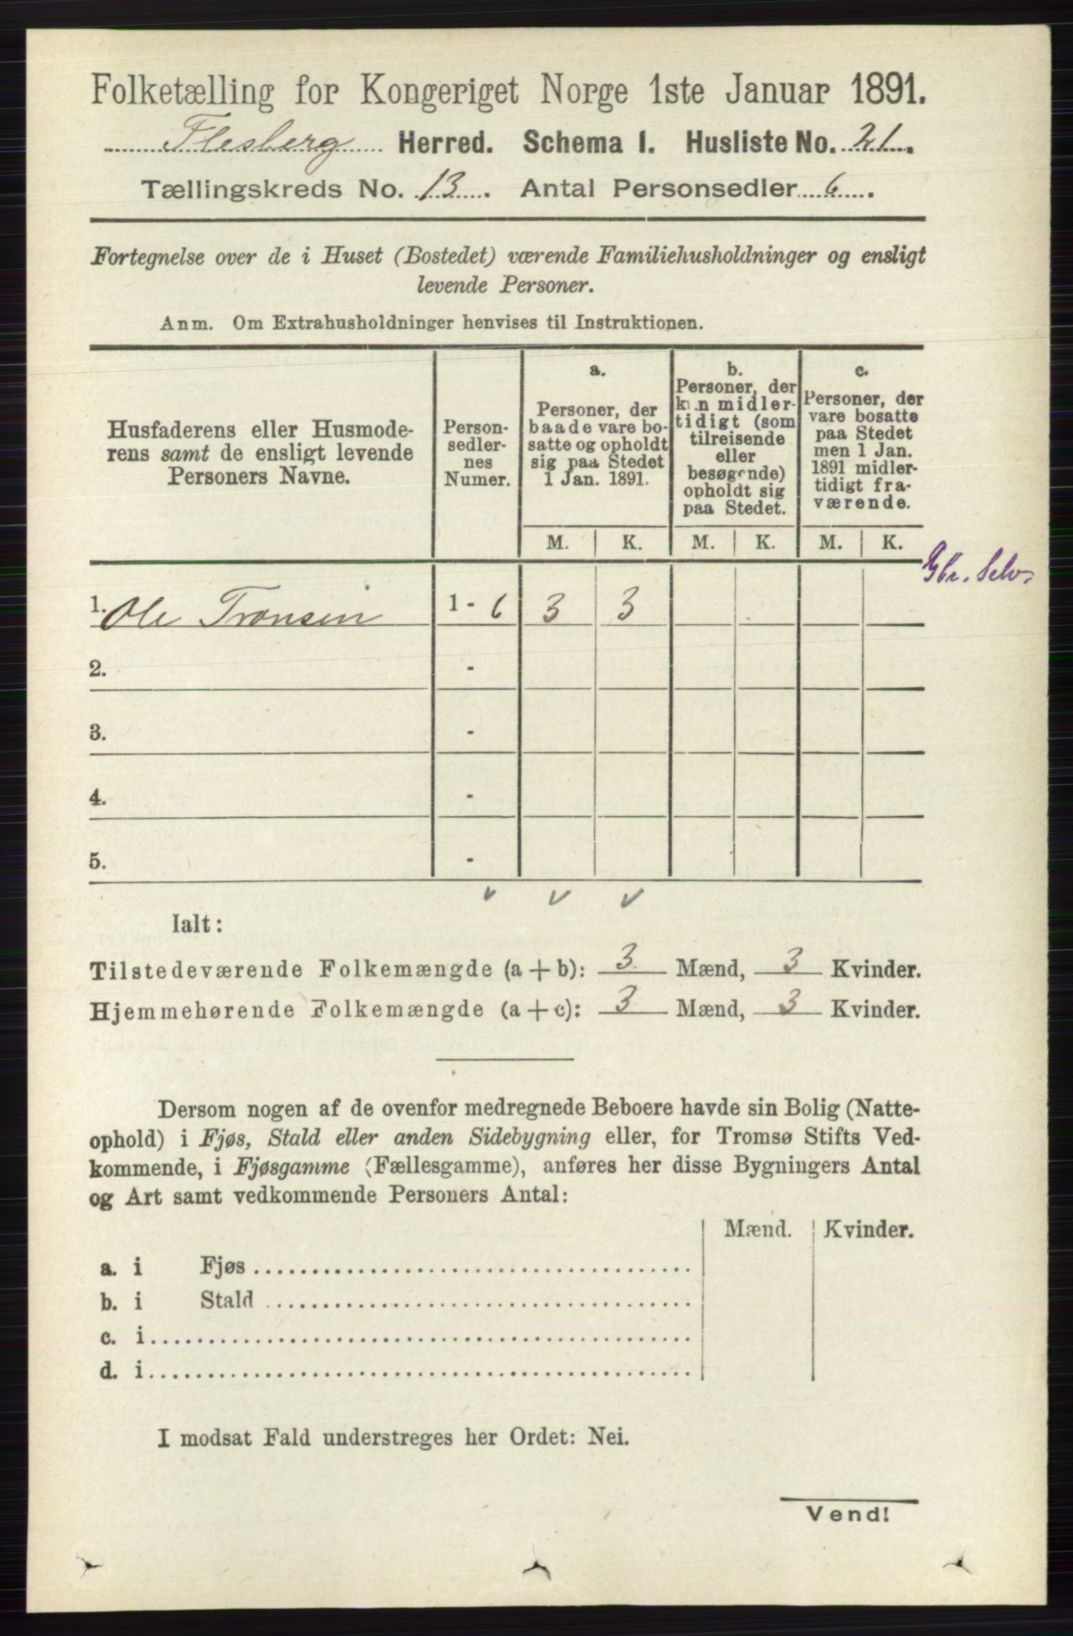 Folketælling for Kongeriget Norge 1ste Januar 1891.
Flesberg Herred. Schema I. Husliste No. 21.
Tællingskreds No. 13. Antal Personsedler 6.
Fortegnelse over de i Huset (Bostedet) værende Familiehusholdninger og ensligt
levende Personer.
Anm. Om Extrahusholdninger henvises til Instruktionen.
Husfaderens eller Husmode-
rens samt de ensligt levende
Personers Navne.
Person-
sedler-
nes
Numer.
a.
Personer, der
baade vare bo-
satte og opholdt
sig paa Stedet
1 Jan. 1891.
b.
Personer, der
kun midler-
tidigt (som
tilreisende
eller
besøgende)
opholdt sig
paa Stedet.
c.
Personer, der
vare bosatte
paa Stedet
men 1 Jan.
1891 midler-
tidigt fra-
værende.
M. K. M. K. M. K.
Gbr. Selv.
1. Ole Tronsen 1 - 6 3 3
2. -
3. -
4. -
5. -
Ialt:
Tilstedeværende Folkemængde (a + b): 3 Mænd, 3 Kvinder.
Hjemmehørende Folkemængde (a + c): 3 Mænd, 3 Kvinder.
Dersom nogen af de ovenfor medregnede Beboere havde sin Bolig (Natte-
ophold) i Fjøs, Stald eller anden Sidebygning eller, for Tromsø Stifts Ved-
kommende, i Fjøsgamme (Fællesgamme), anføres her disse Bygningers Antal
og Art samt vedkommende Personers Antal:
Mænd. Kvinder.
a. i Fjøs
b. i Stald
c. i
d. i
I modsat Fald understreges her Ordet: Nei.
Vend!